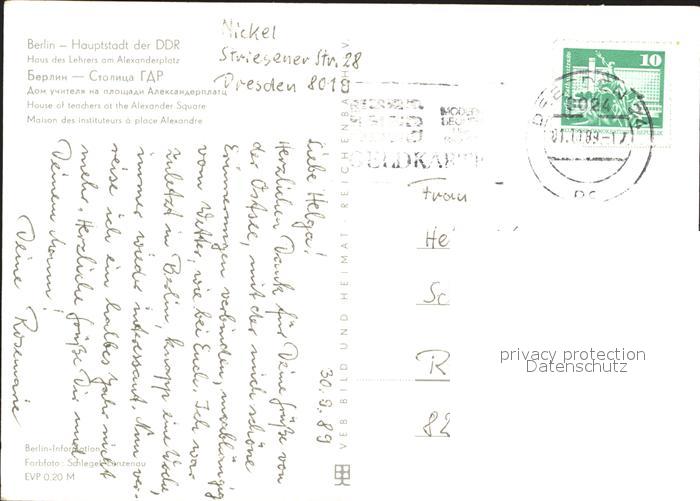 Berlin – Hauptstadt der DDR
Haus des Lehrers am Alexanderplatz
Берлин — Столица ГДР
Дом учителя на площади Александерплатц
House of teachers at the Alexander Square
Maison des instituteurs à place Alexandre
Nickel
Striesener Str. 28
Dresden 8019
10
8024
01.10.89-17
GELDKARTE
30.9.89
Liebe Helga!
Herzlichen Dank für Deine Grüße von
der Ostsee, mit der mich schöne
Erinnerungen verbinden, unabhängig
vom Wetter, wie bei Euch. Ich war
zuletzt in Berlin, knapp eine Woche,
immer wieder interessant. Nun ver-
reise ich ein halbes Jahr nicht
mehr. Herzliche Grüße Dir und
Deinem Mann!
Deine Rosemarie
VEB BILD UND HEIMAT · REICHENBACH I. V.
Frau
He
Sc
R
82
privacy protection
Datenschutz
Berlin-Information
Farbfoto: Schlegel
EVP 0,20 M